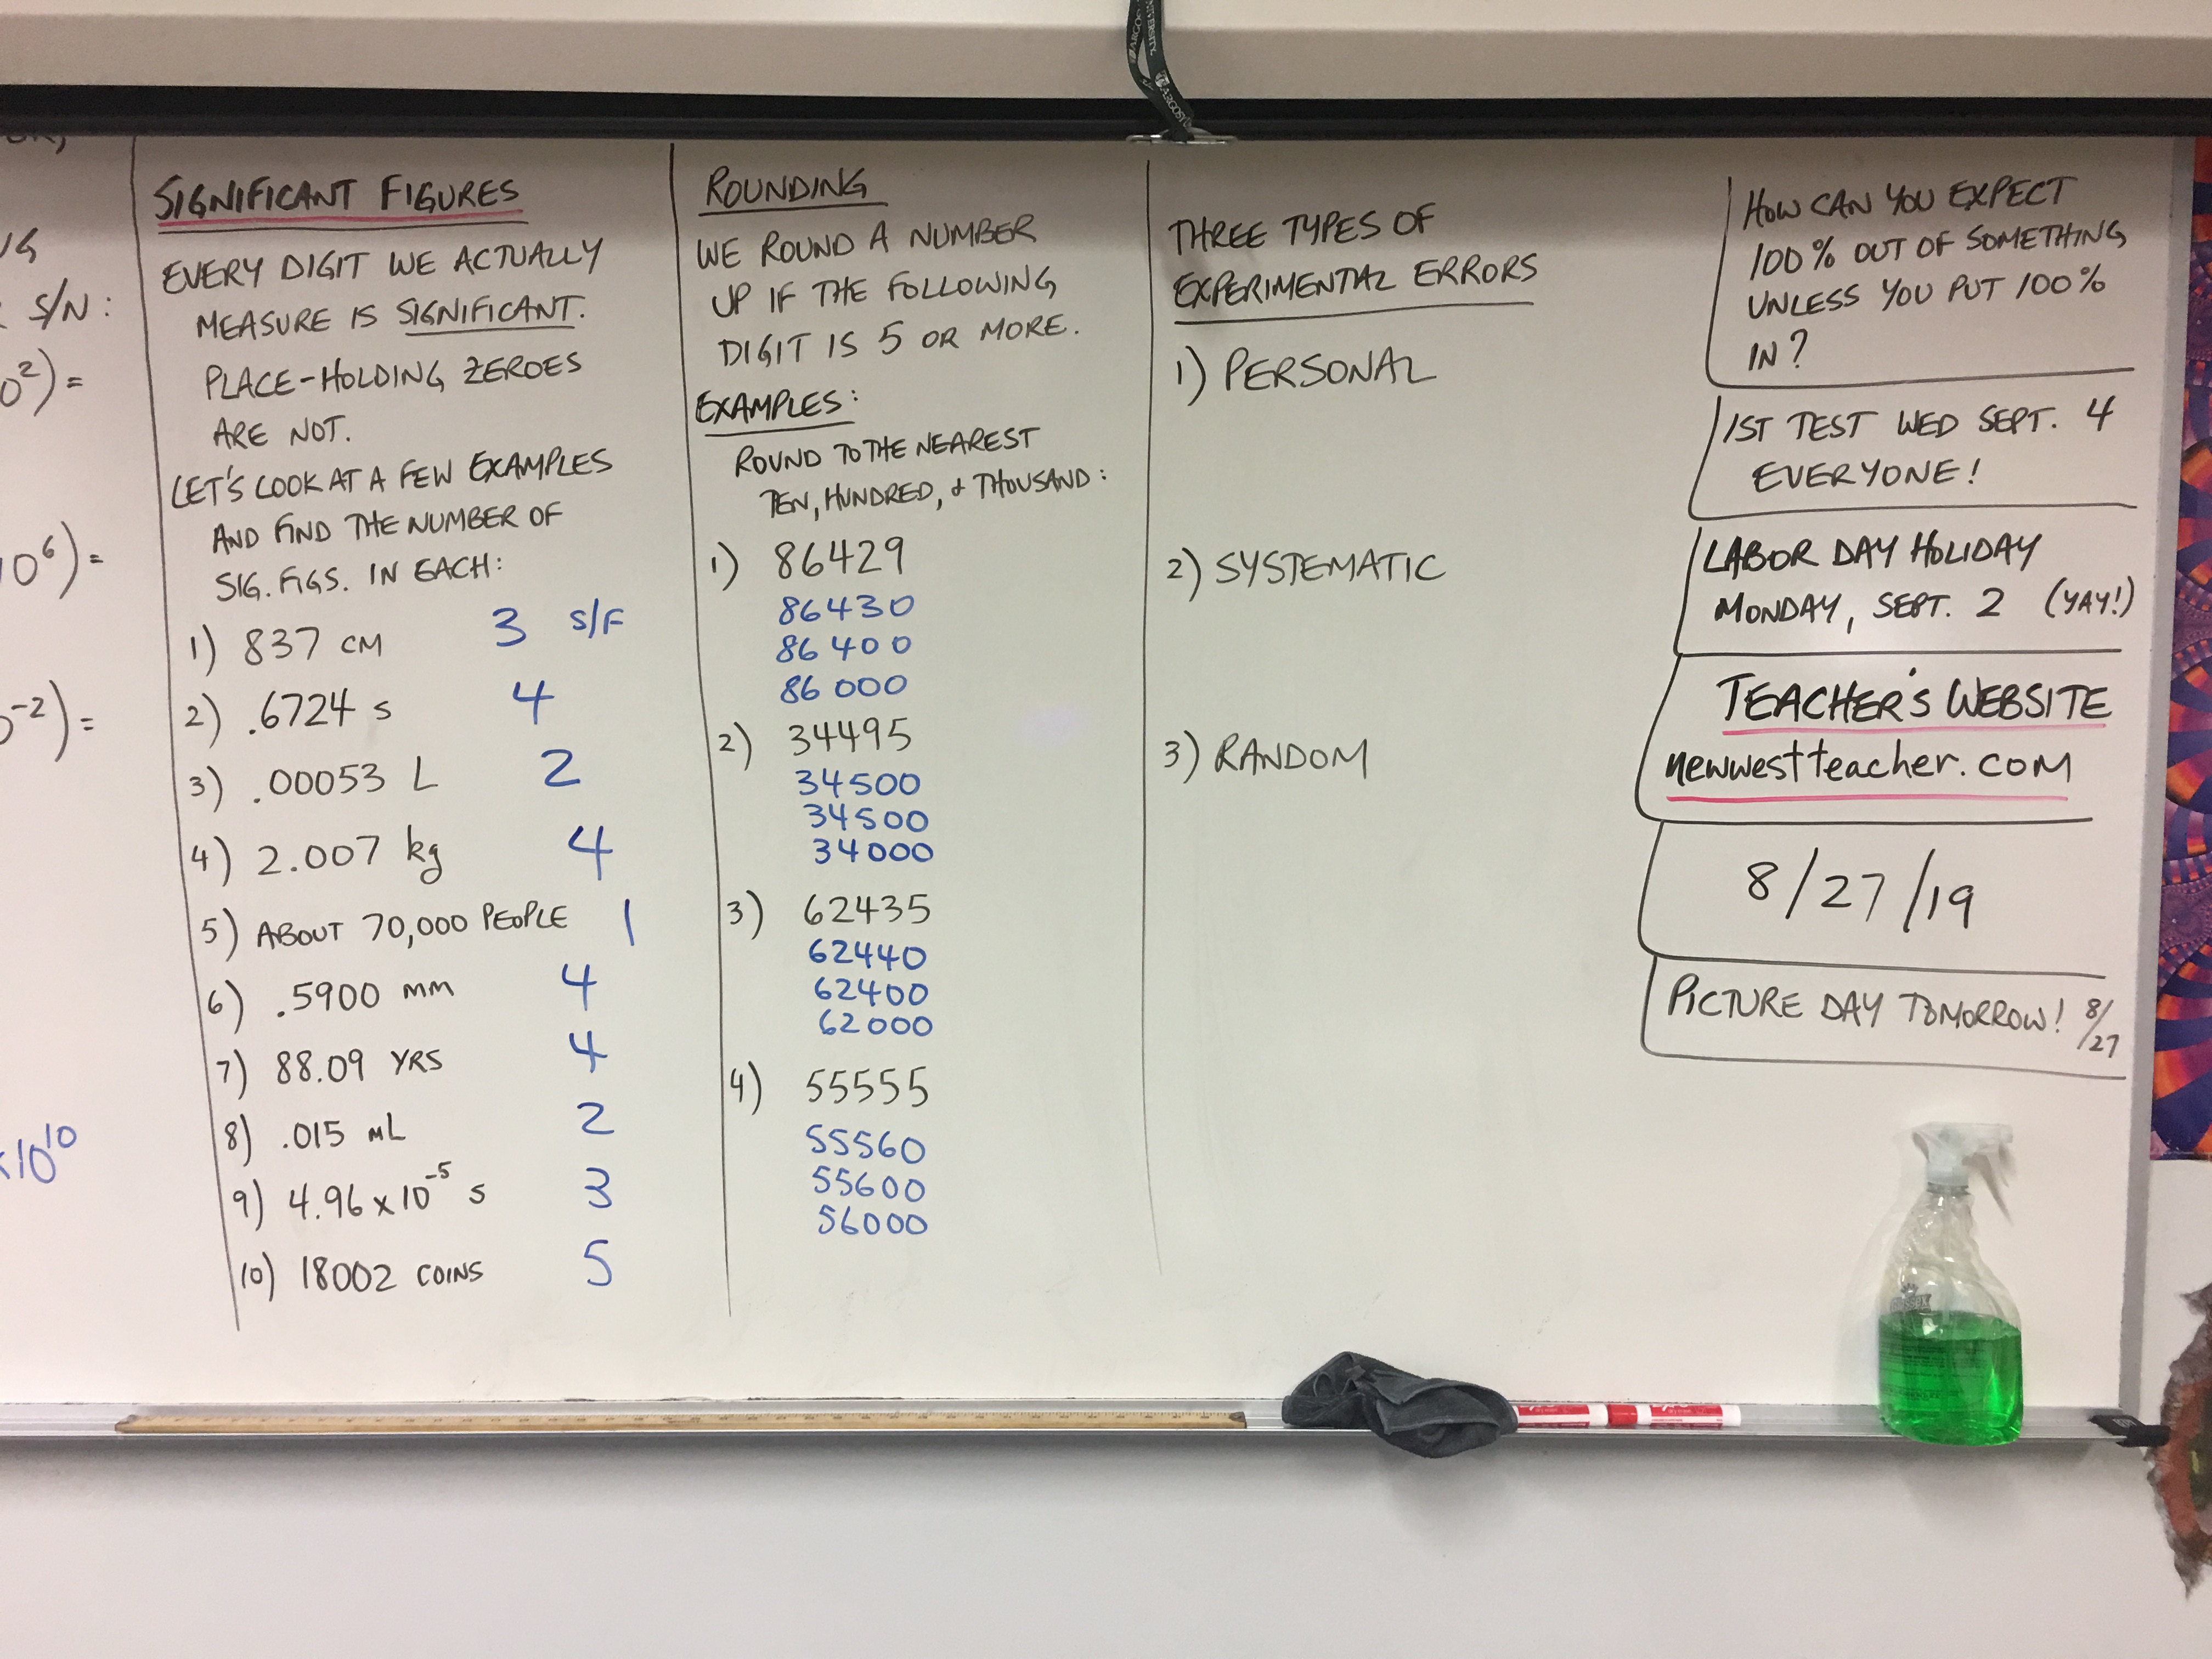 S/N:
0²) =
10⁶) =
⁻²) =
×10¹⁰
SIGNIFICANT FIGURES
EVERY DIGIT WE ACTUALLY
MEASURE IS SIGNIFICANT.
PLACE-HOLDING ZEROES
ARE NOT.
LET'S LOOK AT A FEW EXAMPLES
AND FIND THE NUMBER OF
SIG. FIGS. IN EACH:
1) 837 CM 3 S/F
2) .6724 s 4
3) .00053 L 2
4) 2.007 kg 4
5) ABOUT 70,000 PEOPLE 1
6) .5900 MM 4
7) 88.09 YRS 4
8) .015 mL 2
9) 4.96 x 10⁻⁵ s 3
10) 18002 COINS 5
ROUNDING
WE ROUND A NUMBER
UP IF THE FOLLOWING
DIGIT IS 5 OR MORE.
EXAMPLES:
ROUND TO THE NEAREST
TEN, HUNDRED, & THOUSAND:
1) 86429
86430
86400
86000
2) 34495
34500
34500
34000
3) 62435
62440
62400
62000
4) 55555
55560
55600
56000
THREE TYPES OF
EXPERIMENTAL ERRORS
1) PERSONAL
2) SYSTEMATIC
3) RANDOM
HOW CAN YOU EXPECT
100% OUT OF SOMETHING
UNLESS YOU PUT 100%
IN?
1ST TEST WED SEPT. 4
EVERYONE!
LABOR DAY HOLIDAY
MONDAY, SEPT. 2 (YAY!)
TEACHER'S WEBSITE
newwestteacher.com
8/27/19
PICTURE DAY TOMORROW! 8/27